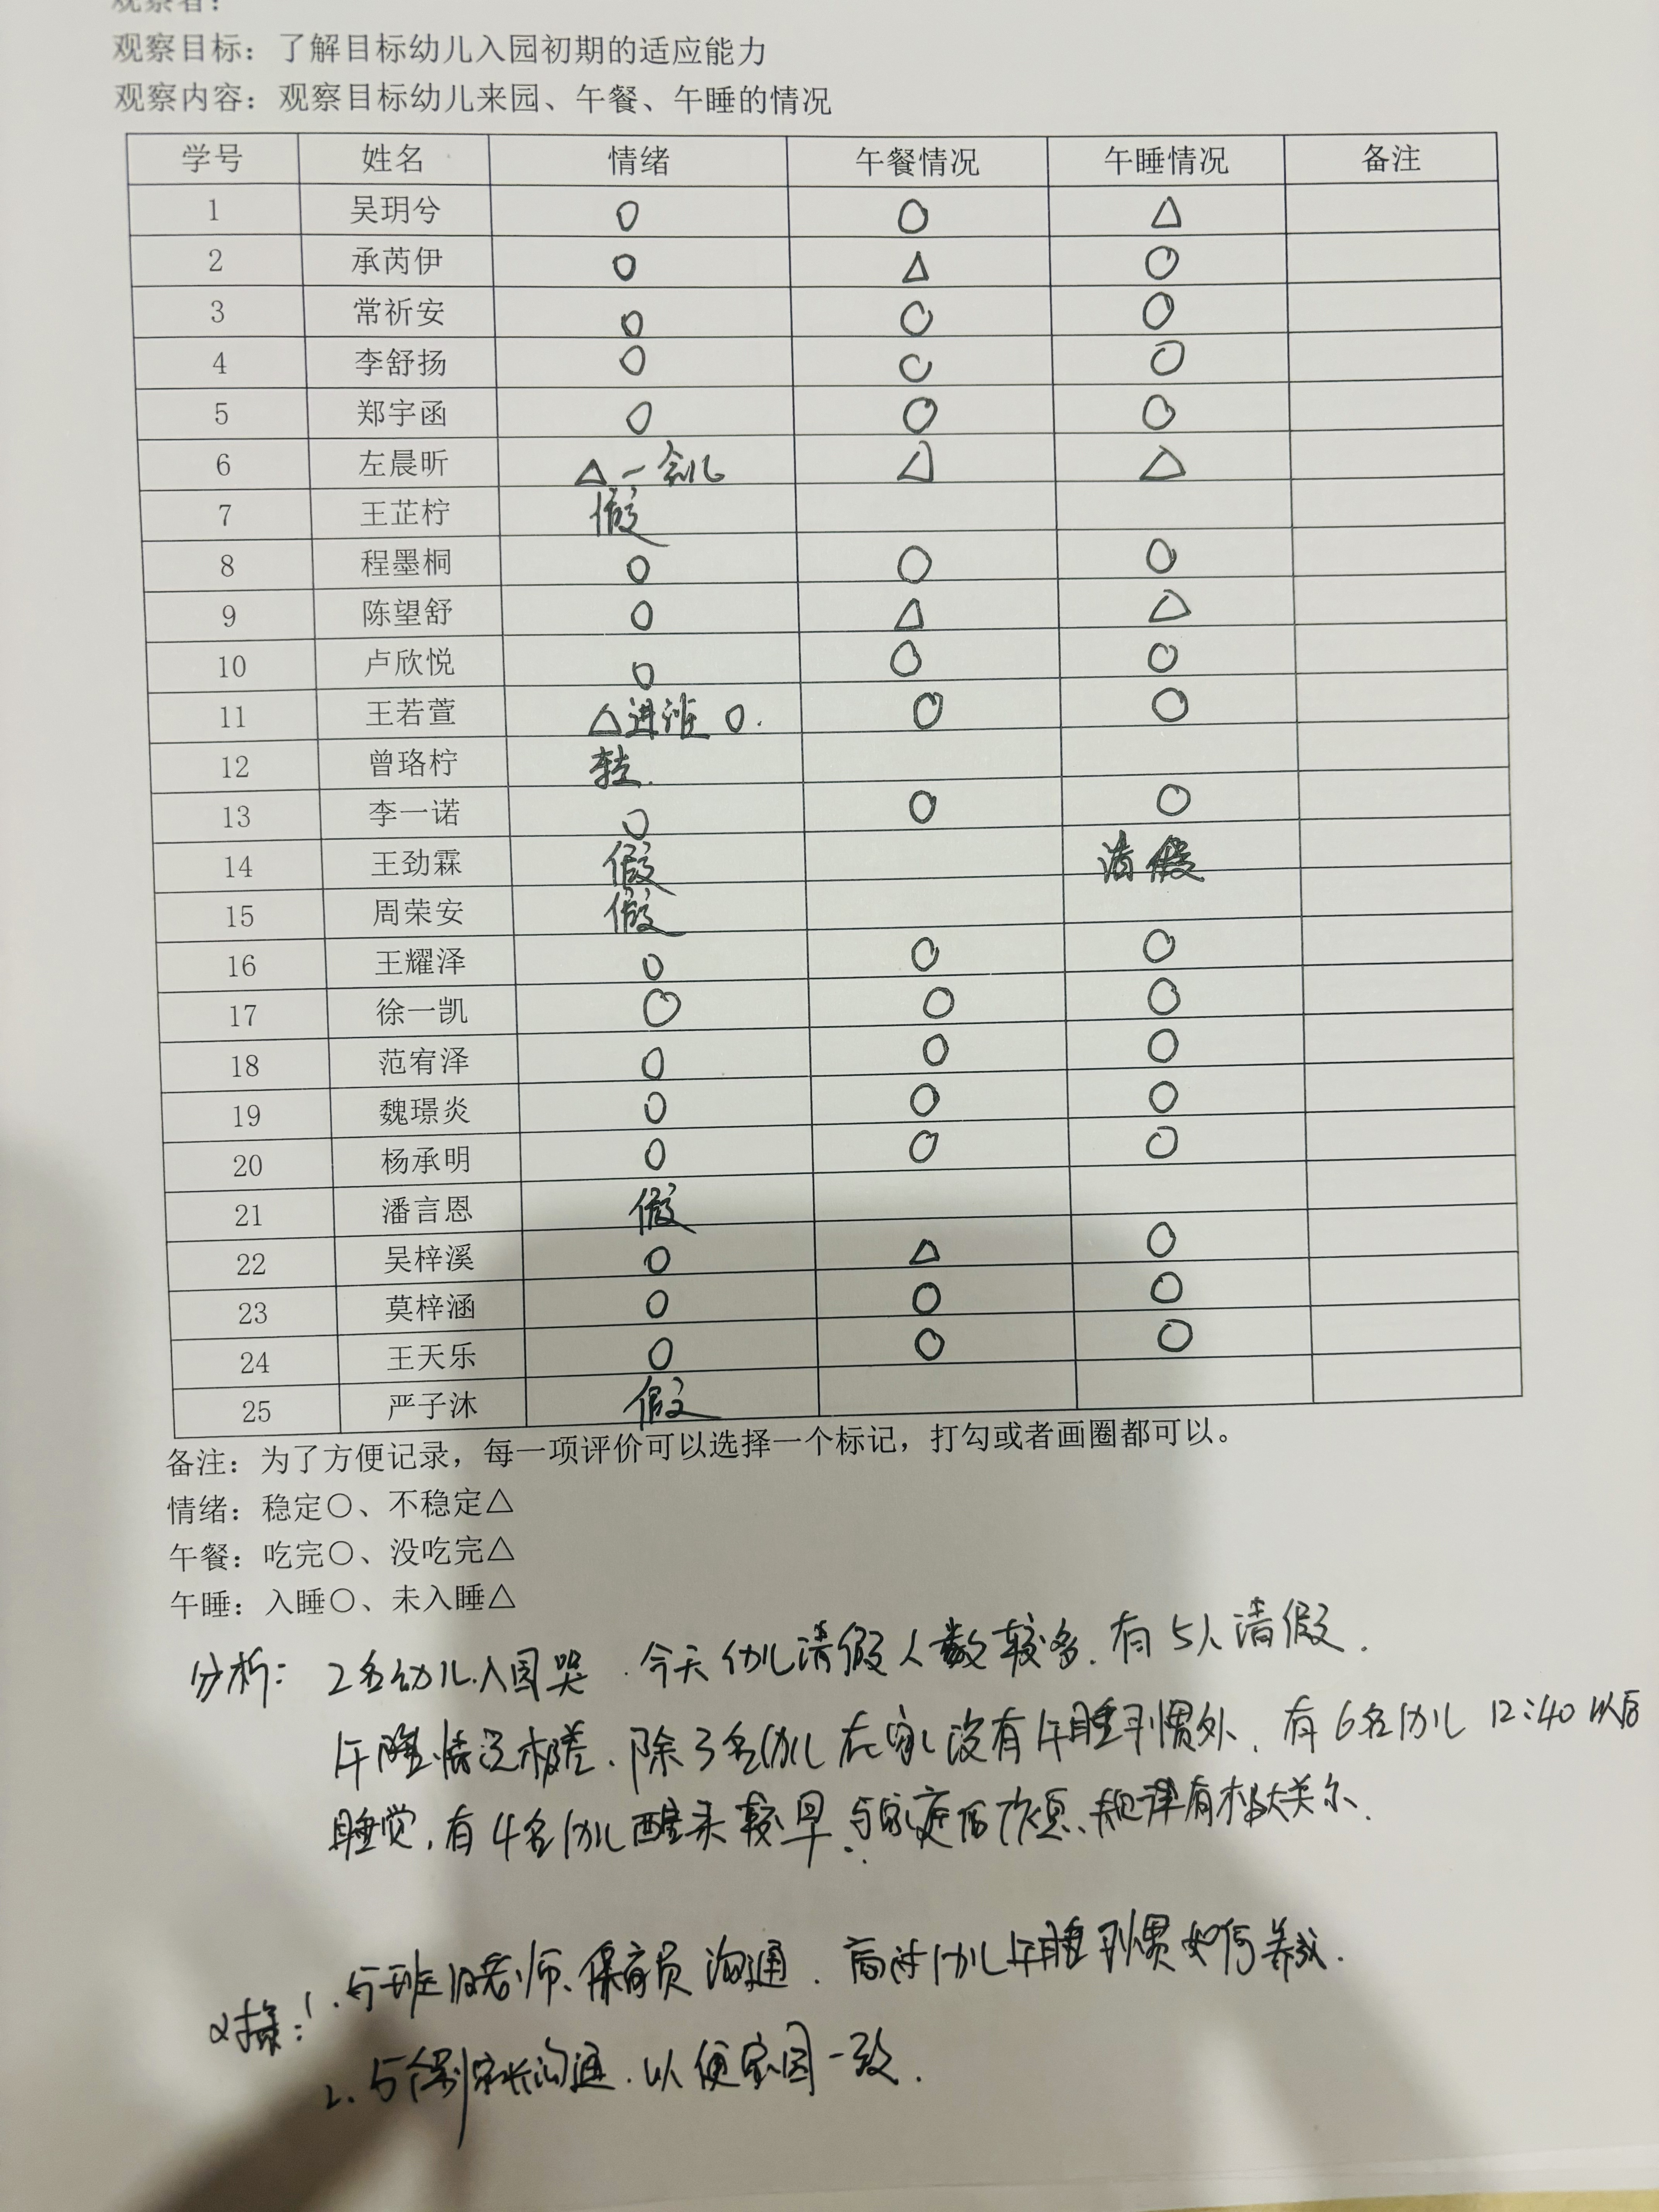 观察者：
观察目标：了解目标幼儿入园初期的适应能力
观察内容：观察目标幼儿来园、午餐、午睡的情况
学号 姓名 情绪 午餐情况 午睡情况 备注
1 吴玥兮 ○ ○ △
2 承芮伊 ○ △ ○
3 常祈安 ○ ○ ○
4 李舒扬 ○ ○ ○
5 郑宇函 ○ ○ ○
6 左晨昕 △一会儿 △ △
7 王芷柠 假
8 程墨桐 ○ ○ ○
9 陈望舒 ○ △ △
10 卢欣悦 ○ ○ ○
11 王若萱 △进班 ○. ○ ○
12 曾珞柠 转.
13 李一诺 ○ ○ ○
14 王劲霖 假 请假
15 周荣安 假
16 王耀泽 ○ ○ ○
17 徐一凯 ○ ○ ○
18 范宥泽 ○ ○ ○
19 魏璟炎 ○ ○ ○
20 杨承明 ○ ○ ○
21 潘言恩 假
22 吴梓溪 ○ △ ○
23 莫梓涵 ○ ○ ○
24 王天乐 ○ ○ ○
25 严子沐 假
备注：为了方便记录，每一项评价可以选择一个标记，打勾或者画圈都可以。
情绪：稳定○、不稳定△
午餐：吃完○、没吃完△
午睡：入睡○、未入睡△
分析：2名幼儿入园哭．今天幼儿请假人数较多．有5人请假．
午睡情况极差．除3名幼儿在家没有午睡习惯外．有6名幼儿12:40以后
睡觉，有4名幼儿醒来较早．与家庭作息、规律有极大关系．
1．与班级老师、保育员沟通．商讨幼儿午睡习惯如何养成．
2．与个别家长沟通．以便家园一致．